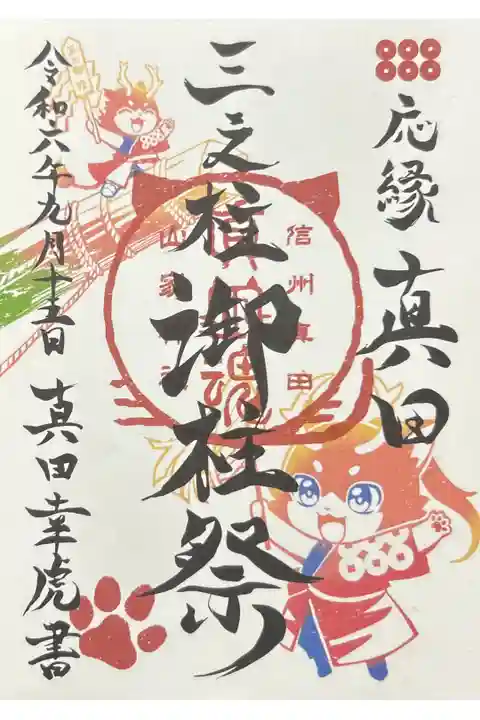 応縁 真田
三之柱 御柱祭
信州真田
山家
令和六年九月十五日 真田幸虎書